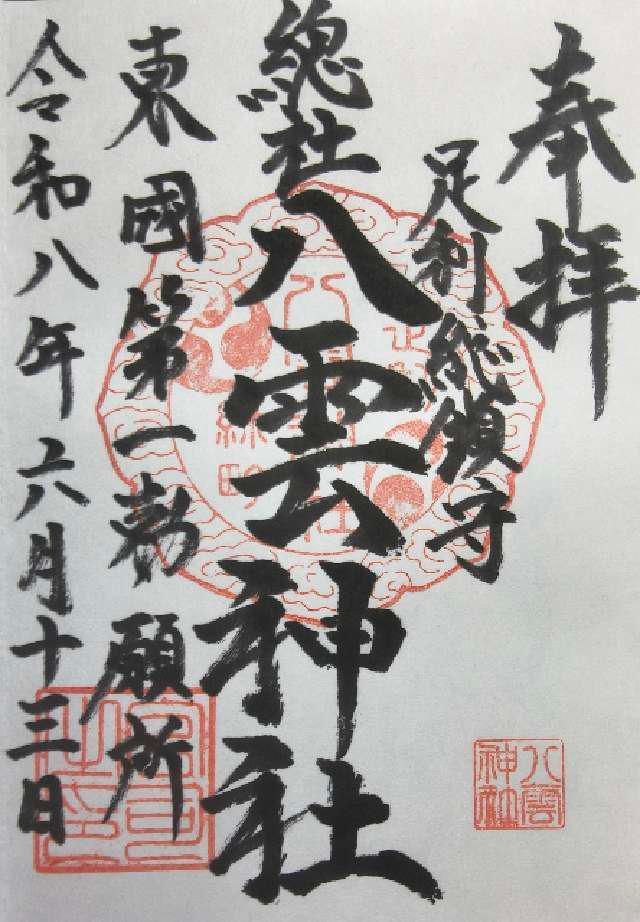 奉拝
足利總鎮守
總社
八雲神社
東國第一勅願所
令和八年六月十三日
八雲
神社